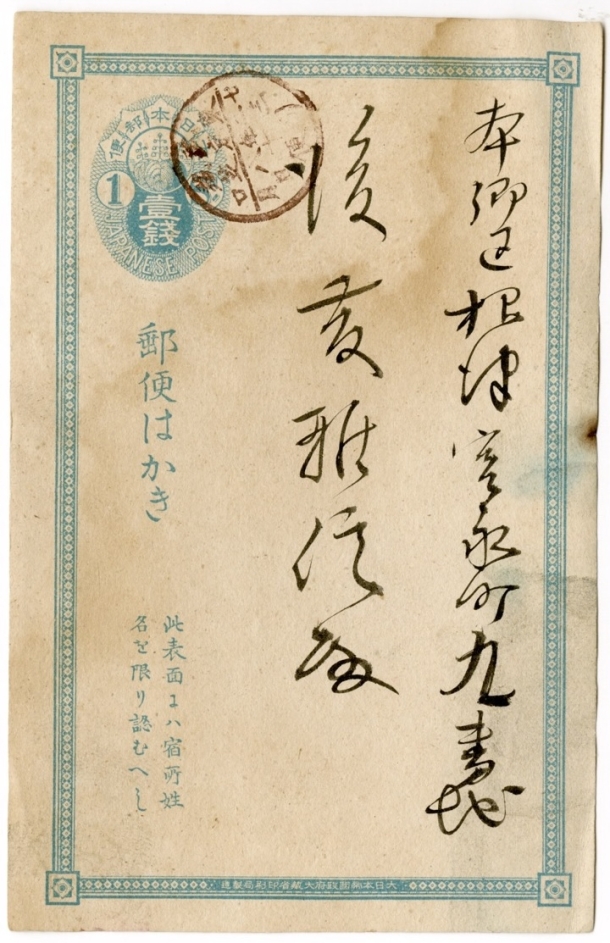 本郷区根津宮永町九番地
後藤雅信殿
日本郵便
1
壹錢
JAPANESE POST
郵便はかき
此表面ニハ宿所姓
名を限り認むへし
大日本帝國政府大藏省印刷局製造